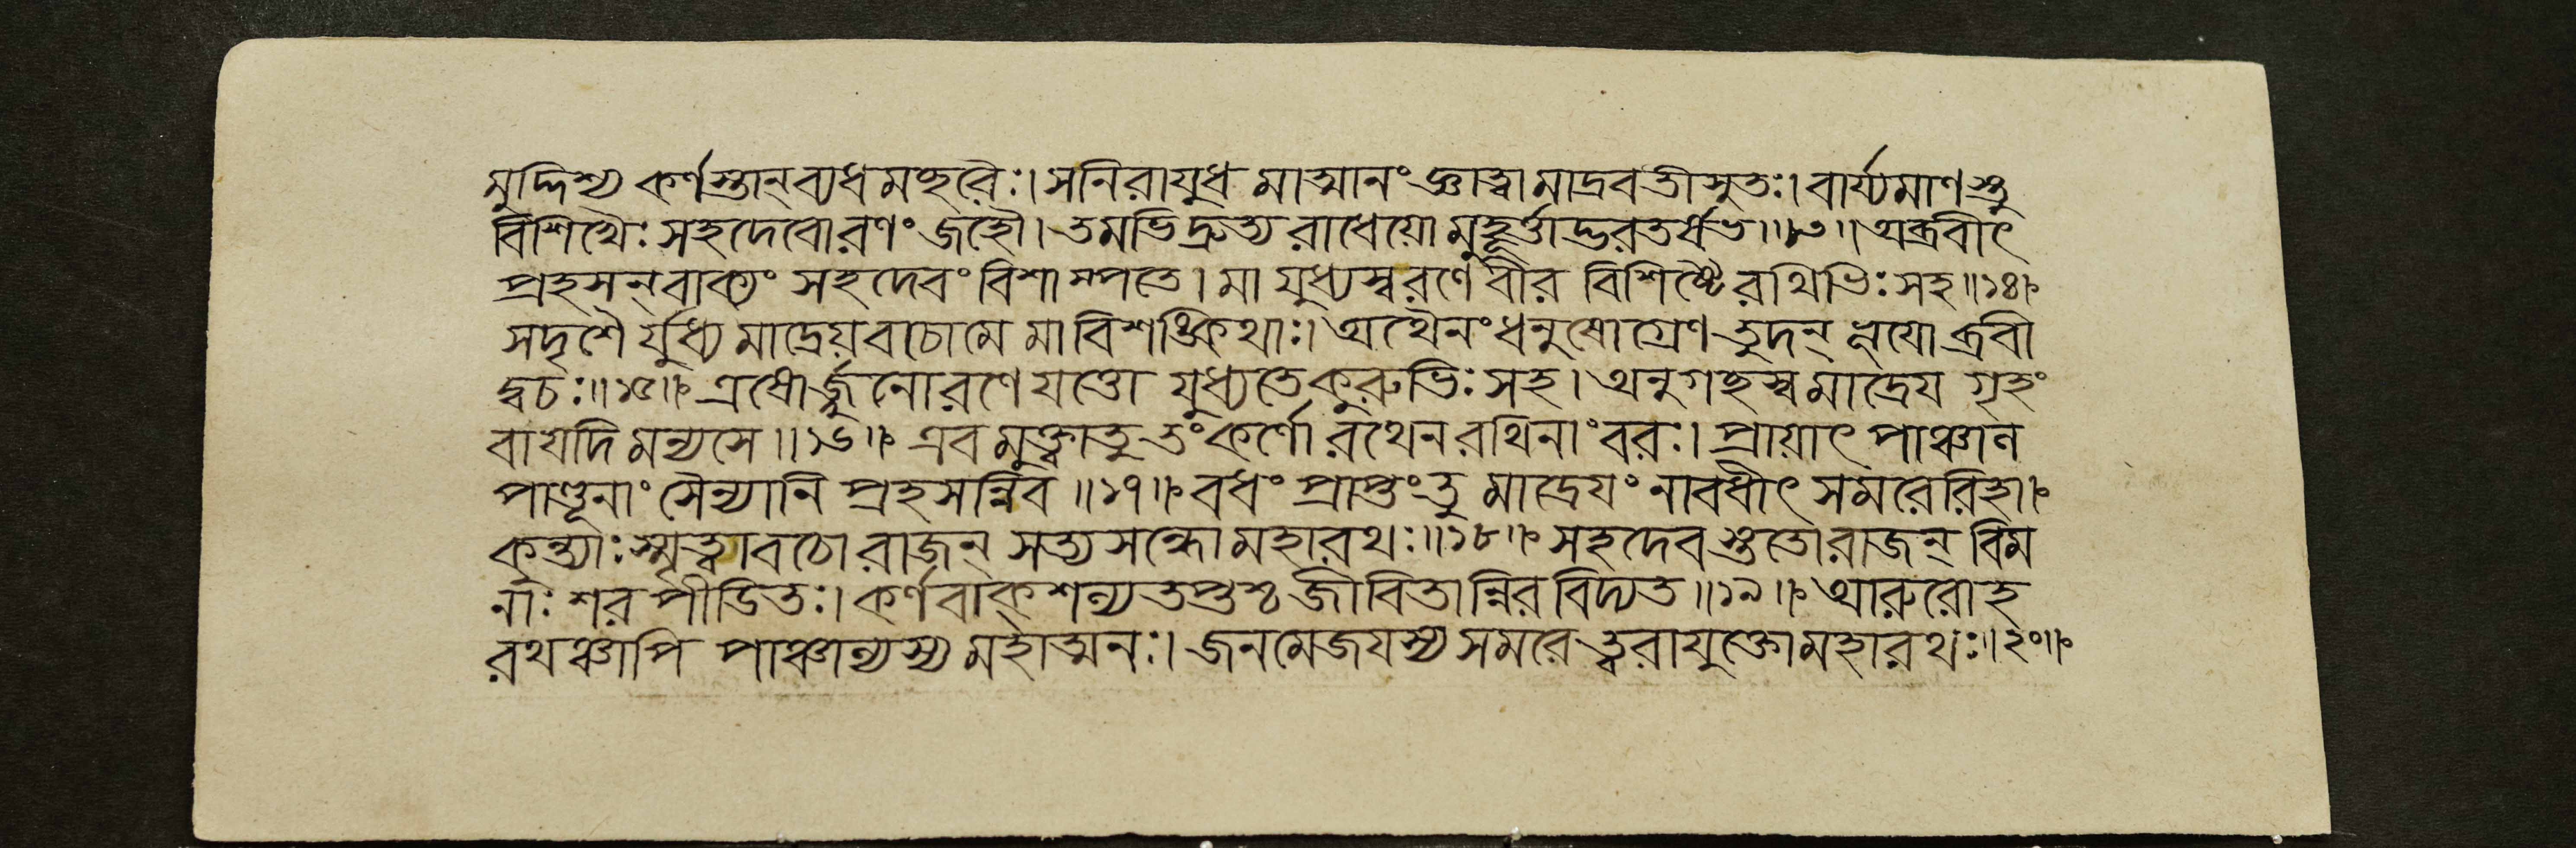 মুদ্দিশ্য কর্ণস্তান্ ব্যধমচ্ছরৈঃ। সনিরাযুধ মাত্মানং জ্ঞাত্বা মাদ্রবতীসুতঃ। বার্য্যমাণস্তু
বিশিখৈঃ সহদেবোরণং জহৌ। তমভিদ্রুত্য রাধেয়ো মুহূর্ত্তাদ্ভরতর্ষভ॥১৩॥ অব্রবীৎ
প্রহসন্ বাক্যং সহদেবং বিশাম্পতে। মা যুধ্যস্ব রণে বীর বিশিষ্টৈ রথিভিঃ সহ॥১৪॥
সদৃশৈ র্যুধ্য মাদ্রেয় বচোমে মা বিশঙ্কিথাঃ। অথৈনং ধনুষোগ্রেণ তুদন্ ভূযোব্রবী
দ্বচঃ॥১৫॥ এষোর্জ্জুনোরণে যত্তো যুধ্যতে কুরুভিঃ সহ। অনুগচ্ছস্ব মাদ্রেয গৃহং
বা যদি মন্যসে॥১৬॥ এব মুক্ত্বাতু তং কর্ণো রথেন রথিনাং বরঃ। প্রায়াৎ পাঞ্চাল
পাণ্ডূনাং সৈন্যানি প্রহসন্নিব॥১৭॥ বধং প্রাপ্তং তু মাদ্রেযং নাবধীৎ সমরেরিহা।
কুন্ত্যাঃ স্মৃত্বাবচো রাজন্ সত্যসন্ধো মহারথঃ॥১৮॥ সহদেবস্তুতো রাজন্ বিম
নাঃ শরপীডিতঃ। কর্ণবাক্শল্যতপ্তশ্চ জীবিতান্নিরবিদ্যত॥১৯॥ আরুরোহ
রথঞ্চাপি পাঞ্চাল্যস্য মহাত্মনঃ। জনমেজযস্য সমরে ত্বরাযুক্তো মহারথঃ॥২০॥